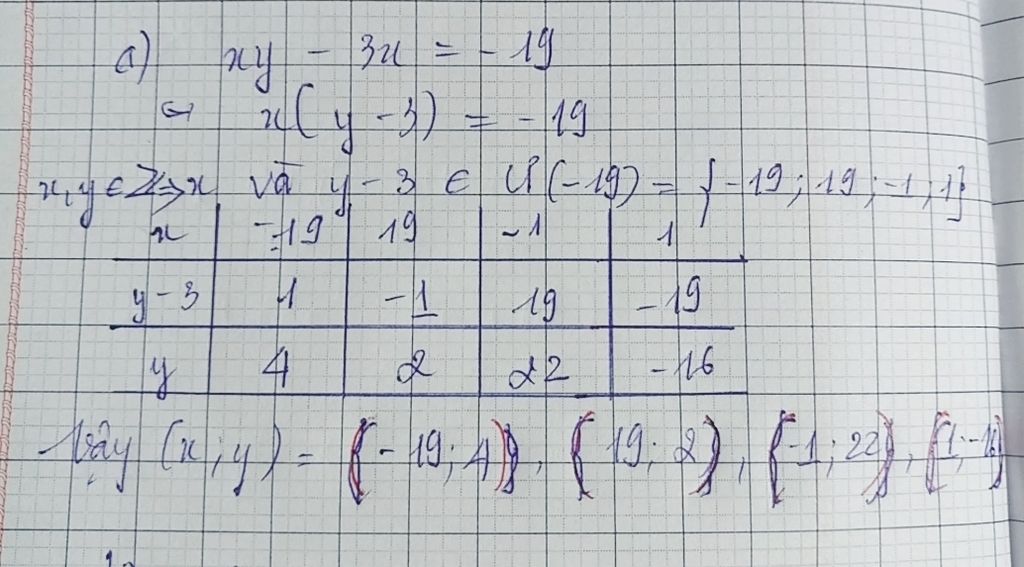 a) xy - 3x = -19
⇔ x(y - 3) = -19
x, y ∈ Z ⇒ x và y - 3 ∈ Ư(-19) = {-19; 19; -1; 1}
x -19 19 -1 1
y - 3 1 -1 19 -19
y 4 2 22 -16
Vậy (x; y) = (-19; 4), (19; 2), (-1; 22), (1; -16)